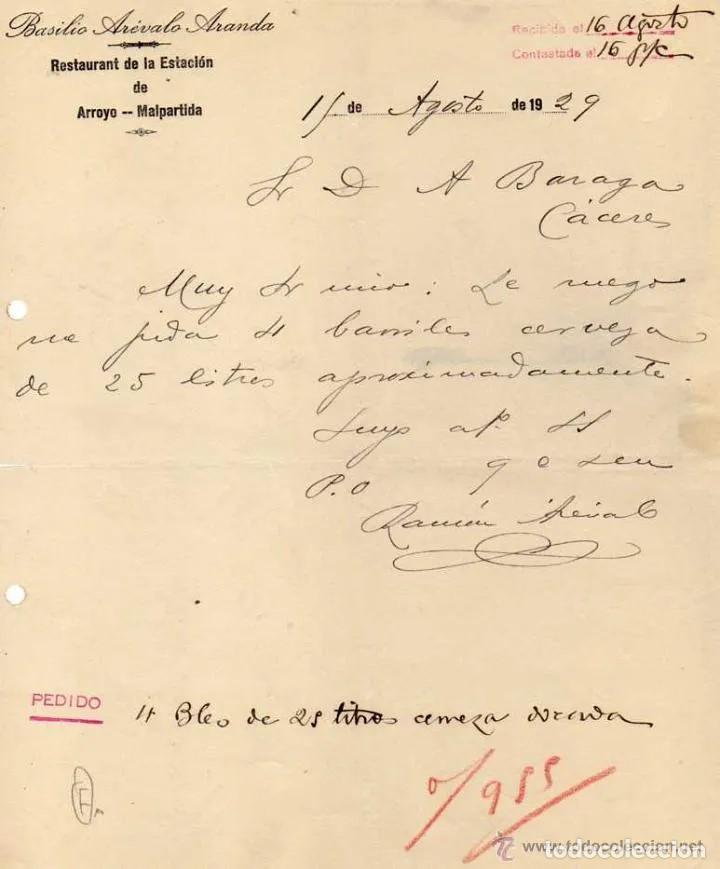 Basilio Arévalo Aranda
Restaurant de la Estación
de
Arroyo -- Malpartida
Recibida el 16 Agosto
Contestada el 16
15 de Agosto de 1929
Sr D A Baraga
Cáceres
Muy Sr mio: Le ruego
me pida 4 barriles cerveza
de 25 litros aproximadamente.
Suyo af. SS
q e s m
P.O
Ramón Arévalo
PEDIDO
4 Bles de 25 litros cerveza dorada
955
www.todocoleccion.net
todocoleccion